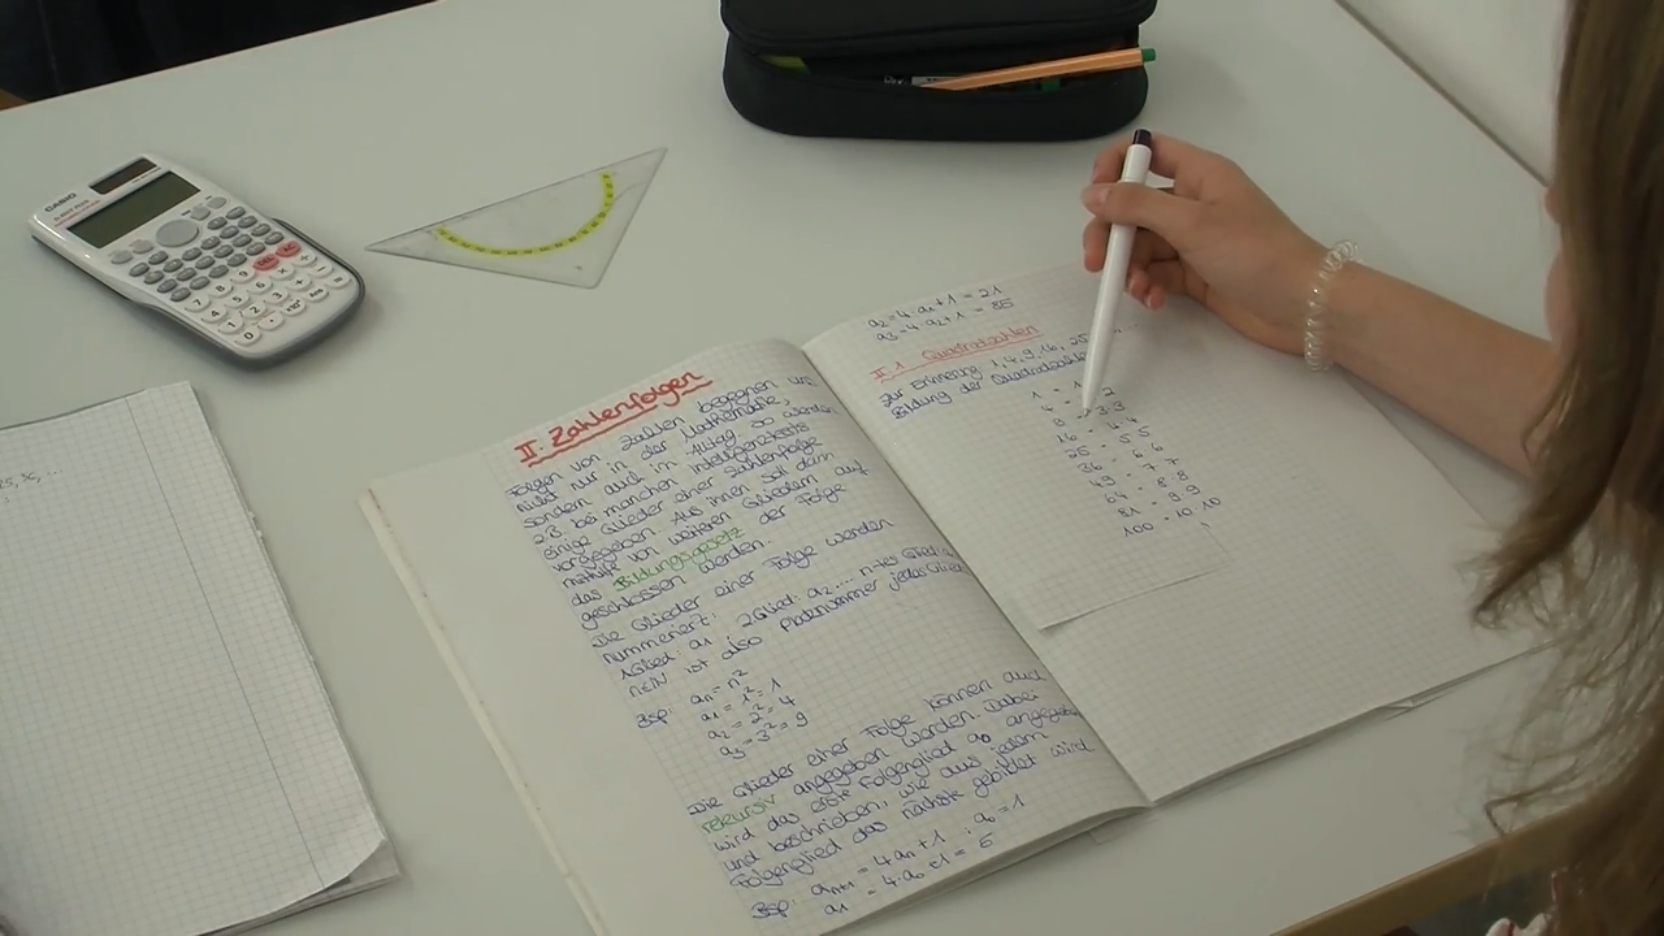 CASIO
DEL AC
7 8 9
4 5 6 × ÷
1 2 3 + −
0 . Ans =
25, 36, ...
II. Zahlenfolgen
Folgen von Zahlen begegnen uns
nicht nur in der Mathematik,
sondern auch im Alltag. So werden
z.B. bei manchen Intelligenztests
einige Glieder einer Zahlenfolge
vorgegeben. Aus ihnen soll dann
mithilfe von weiteren Gliedern auf
das Bildungsgesetz der Folge
geschlossen werden.
Die Glieder einer Folge werden
nummeriert:
1.Glied: a1 2.Glied: a2 .... n-tes Glied:
n∈N ist also Platznummer jedes
Bsp: an = n²
a1 = 1² = 1
a2 = 2² = 4
a3 = 3² = 9
Die Glieder einer Folge können auch
rekursiv angegeben werden. Dabei
wird das erste Folgenglied a0
und beschrieben, wie aus jedem
Folgenglied das nächste gebildet wird
Bsp: an+1 = 4an + 1 ; a0 = 1
a1 = 4·a0 + 1 = 5
a2 = 4·a1 + 1 = 21
a3 = 4·a2 + 1 = 85
II. 1 Quadratzahlen
Zur Erinnerung 1, 4, 9, 16, 25
Bildung der Quadratzahlen
1 = 1
4 =
9 = 3·3
16 = 4·4
25 = 5·5
36 = 6·6
49 = 7·7
64 = 8·8
81 = 9·9
100 = 10·10